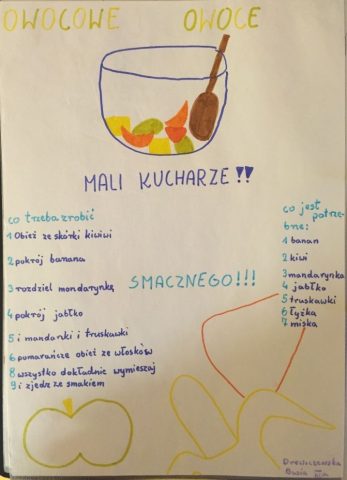 OWOCOWE OWOCE
MALI KUCHARZE !!
co trzeba zrobić
1 Obież ze skórki kiwiwi
2 pokrój banana
3 rozdziel mandarynkę
4 pokrój jabłko
5 i mandarki i truskawki
6 pomarańcze obież ze włosków
8 wszystko dokładnie wymieszaj
9 i zjedz ze smakiem
SMACZNEGO!!!
co jest potrze-
bne:
1 banan
2 kiwi
3 mandarynka
4 jabłko
5 truskawki
6 łyżka
7 miska
Basia